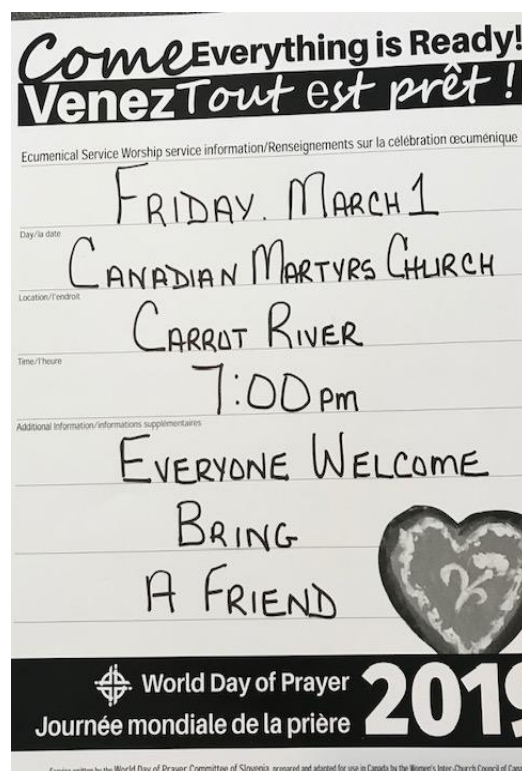 Come Everything is Ready!
Venez Tout est prêt !
Ecumenical Service Worship service information/Renseignements sur la célébration œcuménique
FRIDAY. MARCH 1
Day/la date
CANADIAN MARTYRS CHURCH
Location/l'endroit
CARROT RIVER
Time/l'heure
7:00 pm
Additional Information/informations supplémentaires
EVERYONE WELCOME
BRING
A FRIEND
World Day of Prayer
Journée mondiale de la prière
2019
Service written by the World Day of Prayer Committee of Slovenia, prepared and adapted for use in Canada by the Women's Inter-Church Council of